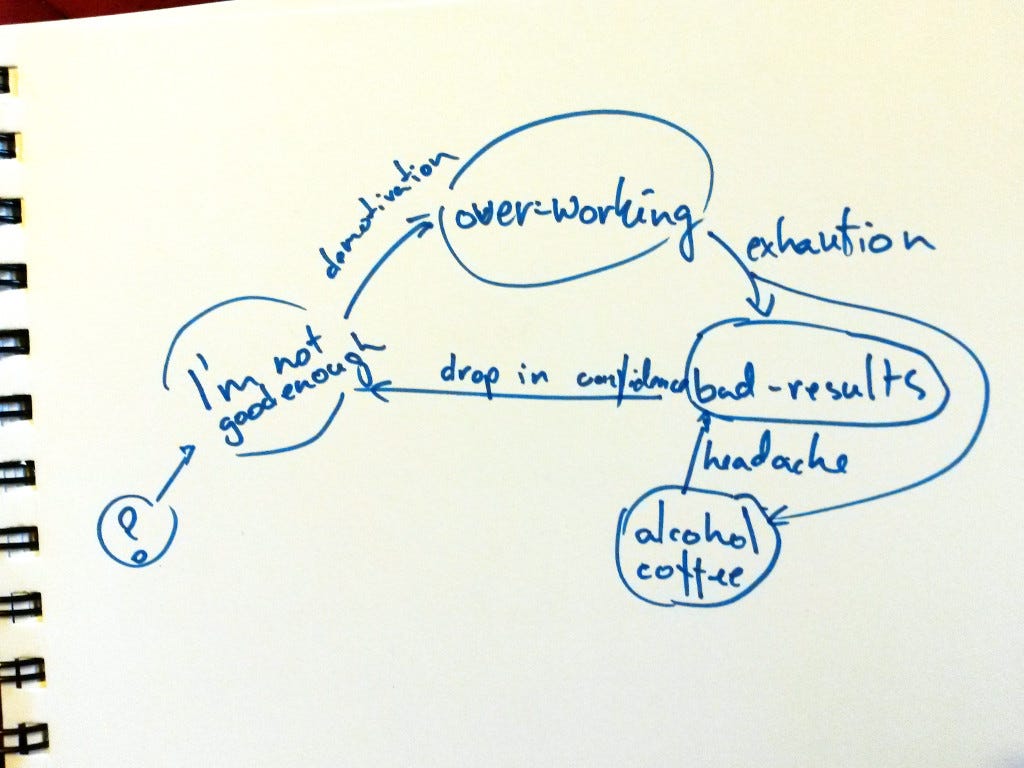 demotivation
over-working
exhaution
I'm not
good enough
drop in confidence
bad-results
headache
?
alcohol
coffee